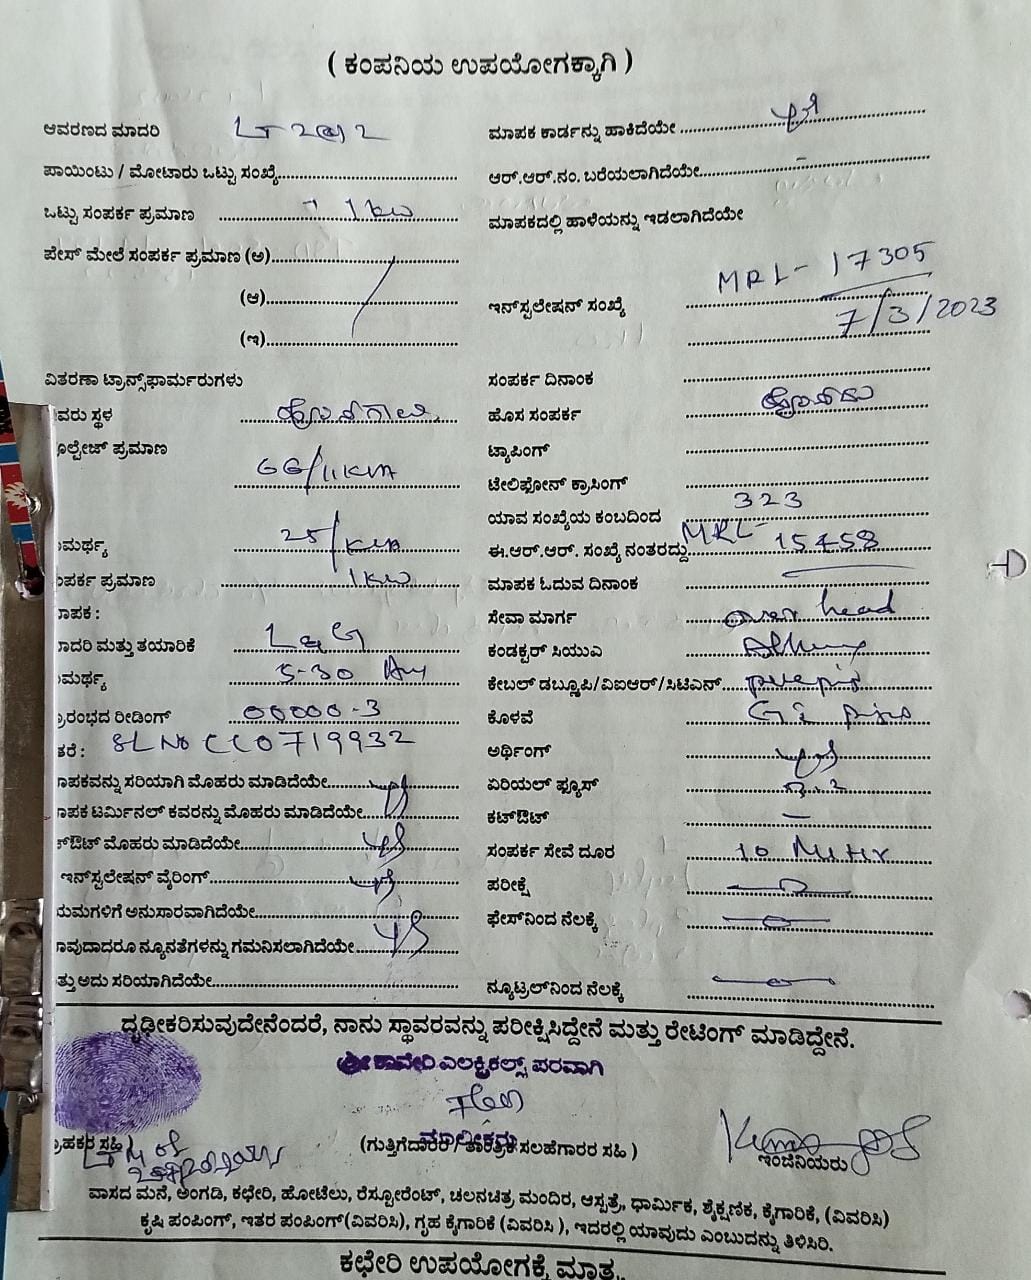 ( ಕಂಪನಿಯ ಉಪಯೋಗಕ್ಕಾಗಿ )
ಆವರಣದ ಮಾದರಿ LT 2(a) 2
ಪಾಯಿಂಟು / ಮೋಟಾರು ಒಟ್ಟು ಸಂಖ್ಯೆ
ಒಟ್ಟು ಸಂಪರ್ಕ ಪ್ರಮಾಣ 1 kw
ಪೇಸ್ ಮೇಲೆ ಸಂಪರ್ಕ ಪ್ರಮಾಣ (ಅ)
(ಆ)
(ಇ)
ವಿತರಣಾ ಟ್ರಾನ್ಸ್‌ಫಾರ್ಮರುಗಳು
ವರು ಸ್ಥಳ
ೂಲ್ಟೇಜ್ ಪ್ರಮಾಣ 66/11KVA
ಮರ್ಥ್ಯ 25/KVA
ಂಪರ್ಕ ಪ್ರಮಾಣ 1kw
ಾಪಕ :
ಾದರಿ ಮತ್ತು ತಯಾರಿಕೆ L&G
ಮರ್ಥ್ಯ 5-30
ರಾರಂಭದ ರೀಡಿಂಗ್ 00000-3
ತರೆ : SL No CC0719932
ಾಪಕವನ್ನು ಸರಿಯಾಗಿ ಮೊಹರು ಮಾಡಿದೆಯೇ
ಾಪಕ ಟರ್ಮಿನಲ್ ಕವರನ್ನು ಮೊಹರು ಮಾಡಿದೆಯೇ
ಕ್‌ಔಟ್ ಮೊಹರು ಮಾಡಿದೆಯೇ
ಇನ್‌ಸ್ಟಲೇಷನ್ ವೈರಿಂಗ್
ಯಮಗಳಿಗೆ ಅನುಸಾರವಾಗಿದೆಯೇ
ಾವುದಾದರೂ ನ್ಯೂನತೆಗಳನ್ನು ಗಮನಿಸಲಾಗಿದೆಯೇ
ತ್ತು ಅದು ಸರಿಯಾಗಿದೆಯೇ
ಮಾಪಕ ಕಾರ್ಡನ್ನು ಹಾಕಿದೆಯೇ
ಆರ್.ಆರ್.ನಂ. ಬರೆಯಲಾಗಿದೆಯೇ
ಮಾಪಕದಲ್ಲಿ ಹಾಳೆಯನ್ನು ಇಡಲಾಗಿದೆಯೇ
ಇನ್‌ಸ್ಟಲೇಷನ್ ಸಂಖ್ಯೆ MRL- 17305
7/3/2023
ಸಂಪರ್ಕ ದಿನಾಂಕ
ಹೊಸ ಸಂಪರ್ಕ
ಟ್ಯಾಪಿಂಗ್
ಟೇಲಿಫೋನ್ ಕ್ರಾಸಿಂಗ್
ಯಾವ ಸಂಖ್ಯೆಯ ಕಂಬದಿಂದ 323
ಈ.ಆರ್.ಆರ್. ಸಂಖ್ಯೆ ನಂತರದ್ದು MRL- 15458
ಮಾಪಕ ಓದುವ ದಿನಾಂಕ
ಸೇವಾ ಮಾರ್ಗ over head
ಕಂಡಕ್ಟರ್ ಸಿಯುಎ
ಕೇಬಲ್ ಡಬ್ಲ್ಯೂಪಿ/ವಿಐಆರ್/ಸಿಟಿಎಸ್
ಕೊಳವೆ
ಅರ್ಥಿಂಗ್
ಏರಿಯಲ್ ಫ್ಯೂಸ್
ಕಟ್‌ಔಟ್
ಸಂಪರ್ಕ ಸೇವೆ ದೂರ 10 Meter
ಪರೀಕ್ಷೆ
ಫೇಸ್‌ನಿಂದ ನೆಲಕ್ಕೆ
ನ್ಯೂಟ್ರಲ್‌ನಿಂದ ನೆಲಕ್ಕೆ
ದೃಢೀಕರಿಸುವುದೇನೆಂದರೆ, ನಾನು ಸ್ಥಾವರವನ್ನು ಪರೀಕ್ಷಿಸಿದ್ದೇನೆ ಮತ್ತು ರೇಟಿಂಗ್ ಮಾಡಿದ್ದೇನೆ.
ಶ್ರೀ ಕಾವೇರಿ ಎಲಕ್ಟ್ರಿಕಲ್ಸ್ ಪರವಾಗಿ
ಮಾಲೀಕರು
ರಾಹಕರ ಸಹಿ )
(ಗುತ್ತಿಗೆದಾರರ / ತಾಂತ್ರಿಕ ಸಲಹೆಗಾರರ ಸಹಿ )
ಇಂಜಿನಿಯರು
ವಾಸದ ಮನೆ, ಅಂಗಡಿ, ಕಛೇರಿ, ಹೋಟೆಲು, ರೆಸ್ಟೋರೆಂಟ್, ಚಲನಚಿತ್ರ ಮಂದಿರ, ಆಸ್ಪತ್ರೆ, ಧಾರ್ಮಿಕ, ಶೈಕ್ಷಣಿಕ, ಕೈಗಾರಿಕೆ, (ವಿವರಿಸಿ)
ಕೃಷಿ ಪಂಪಿಂಗ್, ಇತರ ಪಂಪಿಂಗ್(ವಿವರಿಸಿ), ಗೃಹ ಕೈಗಾರಿಕೆ (ವಿವರಿಸಿ ), ಇದರಲ್ಲಿ ಯಾವುದು ಎಂಬುದನ್ನು ತಿಳಿಸಿರಿ.
ಕಛೇರಿ ಉಪಯೋಗಕ್ಕೆ ಮಾತ್ರ